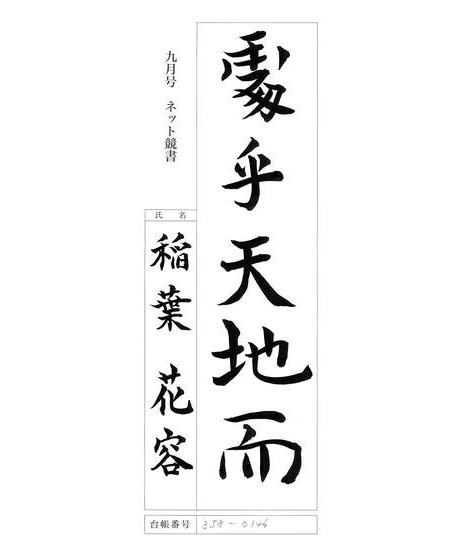 處乎天地而
九月号 ネット競書
氏名
稲葉 花容
台帳番号 358-0146